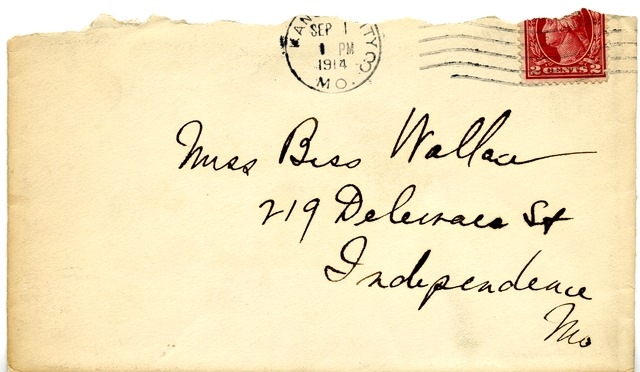 KANSAS CITY
SEP 1
1 PM
1914
MO.
2 CENTS 2
Miss Bess Wallace
219 Delaware St
Independence
Mo